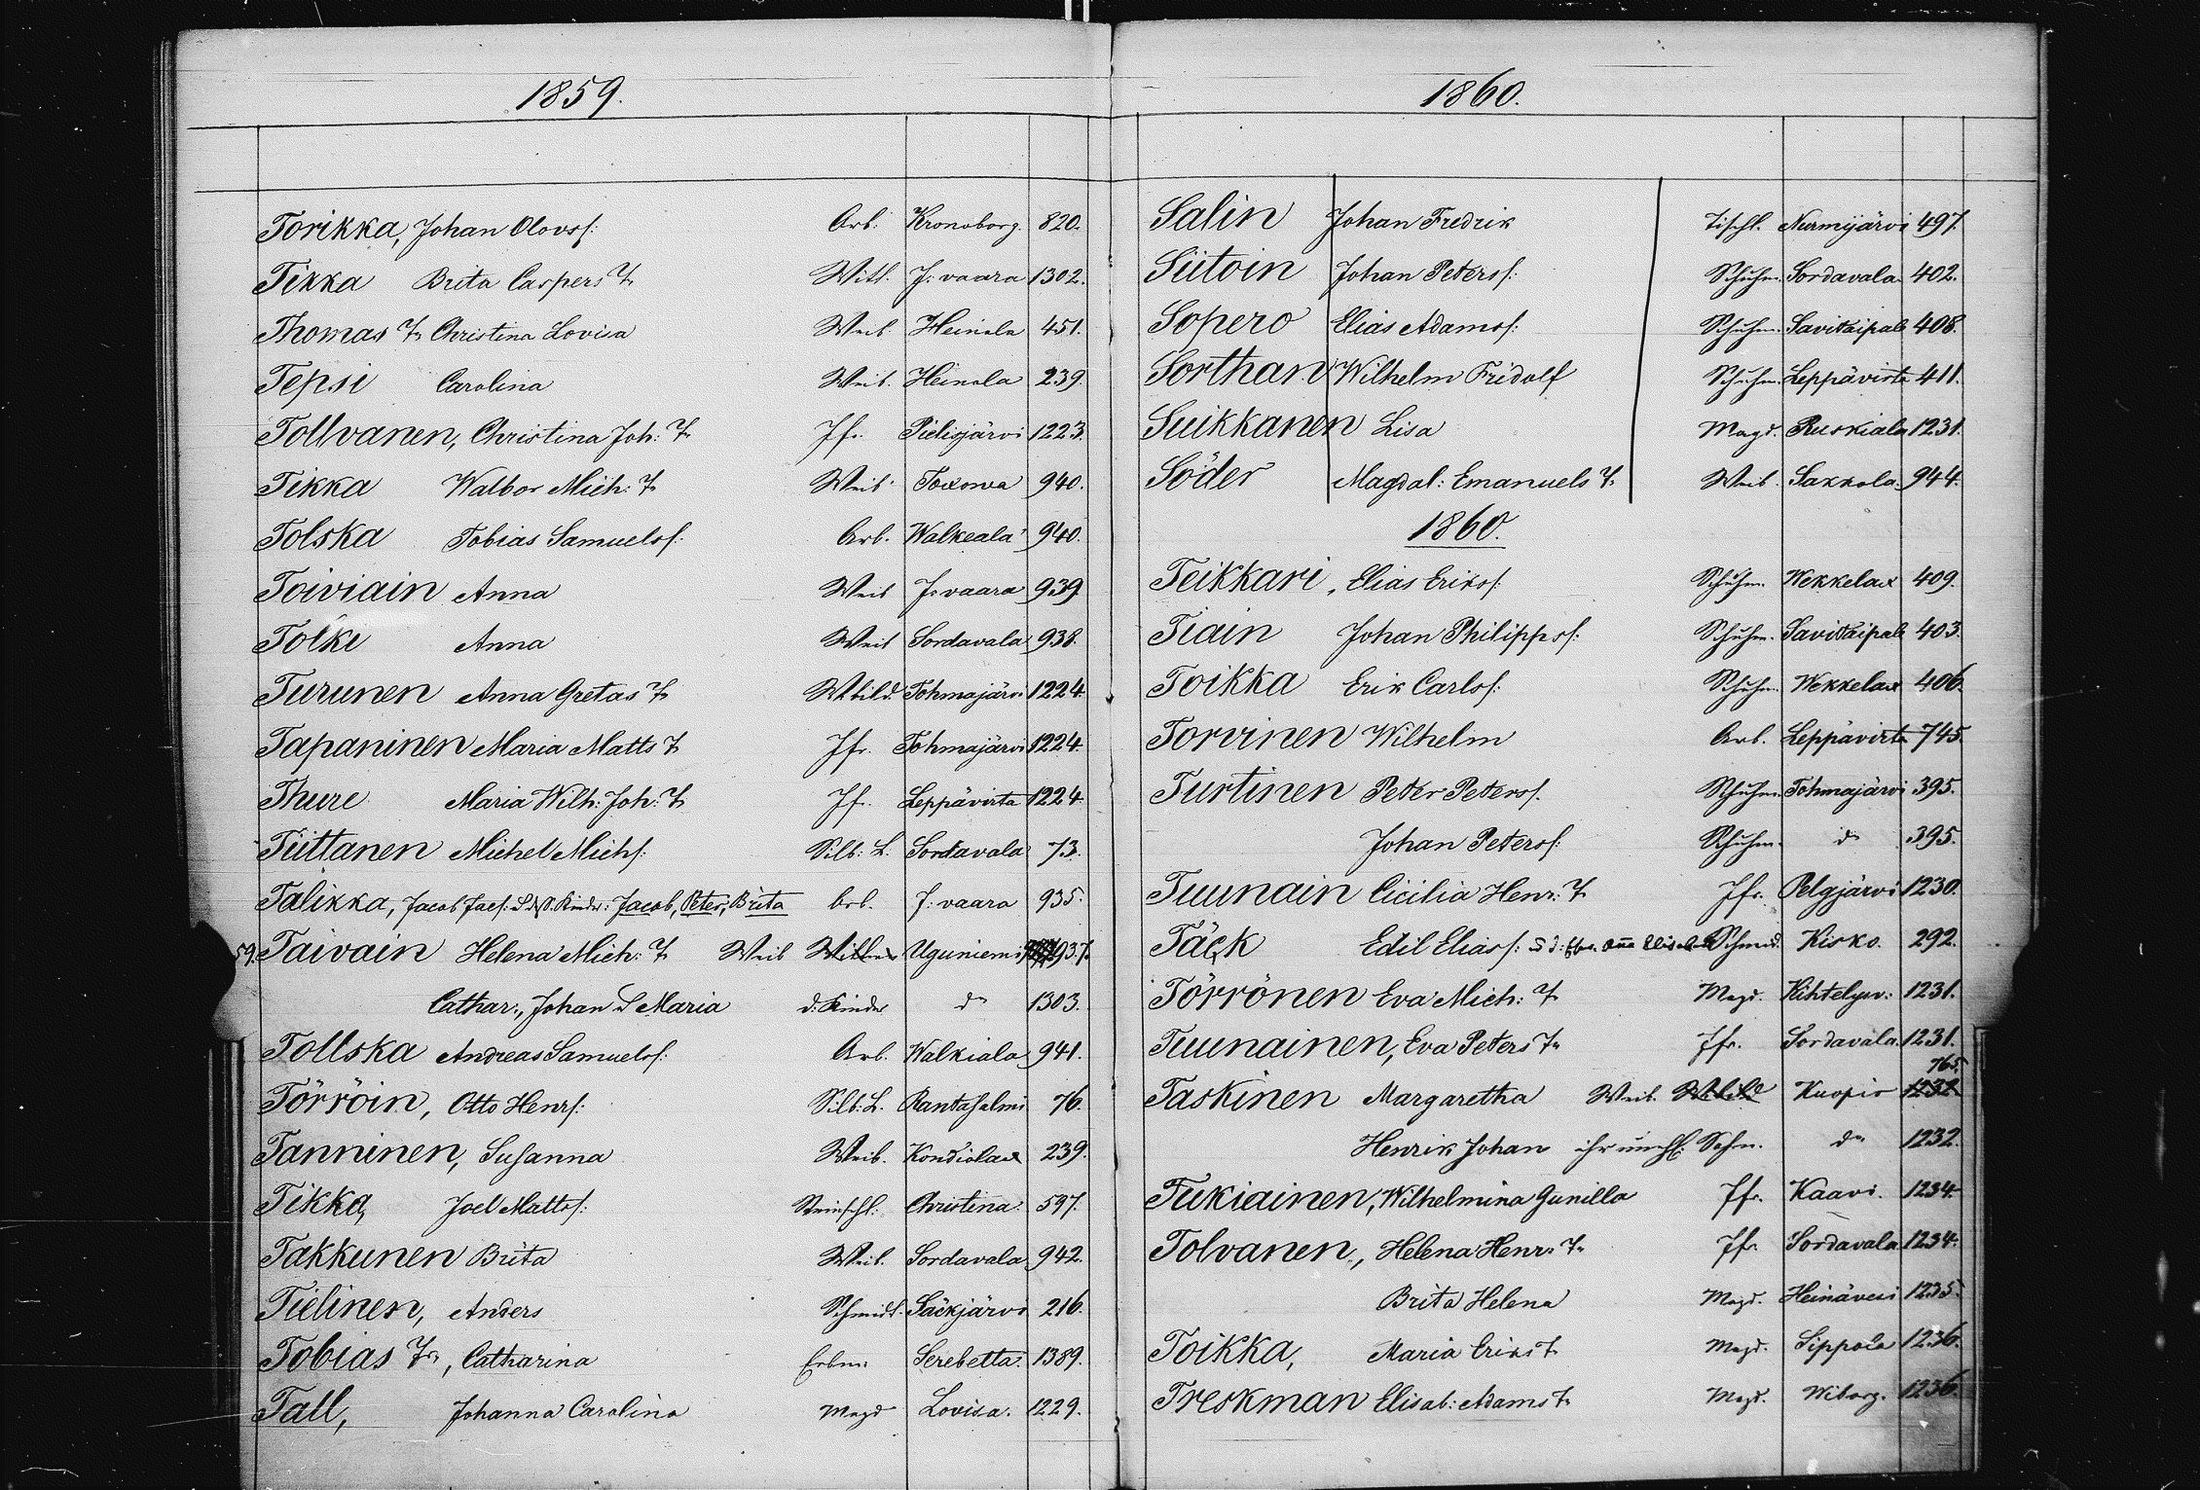 1859.
Torikka, Johan Olovsf: Arb. Kronoborg. 820.
Tikka Brita Caspers T. Witt. J: vaara 1302.
Thomas T. Christina Lovisa Weib. Heinola 451.
Tepsi Carolina Weib. Heinola 239.
Tollvanen, Christina Joh: T. Jfr. Pielisjärvi 1223.
Tikka Walbor Mich: T. Weib. Toxowa 940.
Tolska Tobias Samuelsf: Arb. Walkeala 940.
Toiviain Anna Weib J: vaara 939
Tolki Anna Weib Sordavala 938.
Turunen Anna Gretas T. Tohmajärvi 1224.
Tapaninen Maria Matts T. Jfr. Tohmajärvi 1224.
Thure Maria Wilh: Joh: T. Jf. Leppävirta 1224.
Tiittanen Michel Michf: Silb: L. Sordavala 73.
Talikka, Jacob Jacf: Kinder: Jacob, Peter, Brita Arb. J: vaara 935.
59. Taivain Helena Mich: T. Weib Uguniemi 937.
Cathar:, Johan & Maria d. Kinder do 1303.
Tollska Andreas Samuelsf: Arb. Walkiala 941.
Törröin, Otto Henrf: Silb: L. Rantasalmi 76.
Tanninen, Susanna Weib. Kondiolax 239.
Tikka, Joel Mattsf: Steinschl: Christina: 597.
Takkunen Brita Weib. Sordavala 942.
Tielinen, Anders Schmidt. Säckjärvi 216.
Tobias T., Catharina Serebetta: 1389.
Tall, Johanna Carolina Magd Lovisa. 1229.
1860.
Salin Johan Fredrik Tischl. Nurmijärvi 497.
Siitoin Johan Petersf: Schuhm. Sordavala 402.
Sopero Elias Adamsf: Schuhm. Savitaipale 408.
Sorthan Wilhelm Fridolf Schuhm. Leppävirta 411.
Suikkanen Lisa Magd. Ruskiala 1231.
Söder Magdal: Emanuels T. Weib. Sakkola 944.
1860.
Teikkari, Elias Eriksf: Schuhm. Wekkelax 409.
Tiain Johan Philippsf: Schuhm. Savitaipale 403.
Toikka Erik Carlsf: Schuhm. Wekkelax 406.
Torvinen Wilhelm Arb. Leppävirta 745.
Turtinen Peter Petersf. Schuhm. Tohmajärvi 395.
Johan Petersf: Schuhm. do 395.
Tuunain Cicilia Henr: T. Jfr. Pelgjärvi 1230.
Täck Edil Eliasf: Schmid. Kisko. 292.
Törrönen Eva Mich: T. Magd. Kihtelysv: 1231.
Tuunainen, Eva Peters T. Jfr. Sordavala 1231.
765.
Taskinen Margaretha Weib. Kuopio 1232
Henrik Johan ihr unehl: Sohn. do 1232.
Tukiainen, Wilhelmina Gunilla Jfr. Kaavi. 1234.
Tolvanen, Helena Henr. T. Jfr. Sordavala 1234.
Brita Helena Magd. Heinävesi 1235.
Toikka, Maria Eriks T. Magd. Sippola 1236.
Treskman Elisab: Adams T. Magd. Wiborg. 1236.